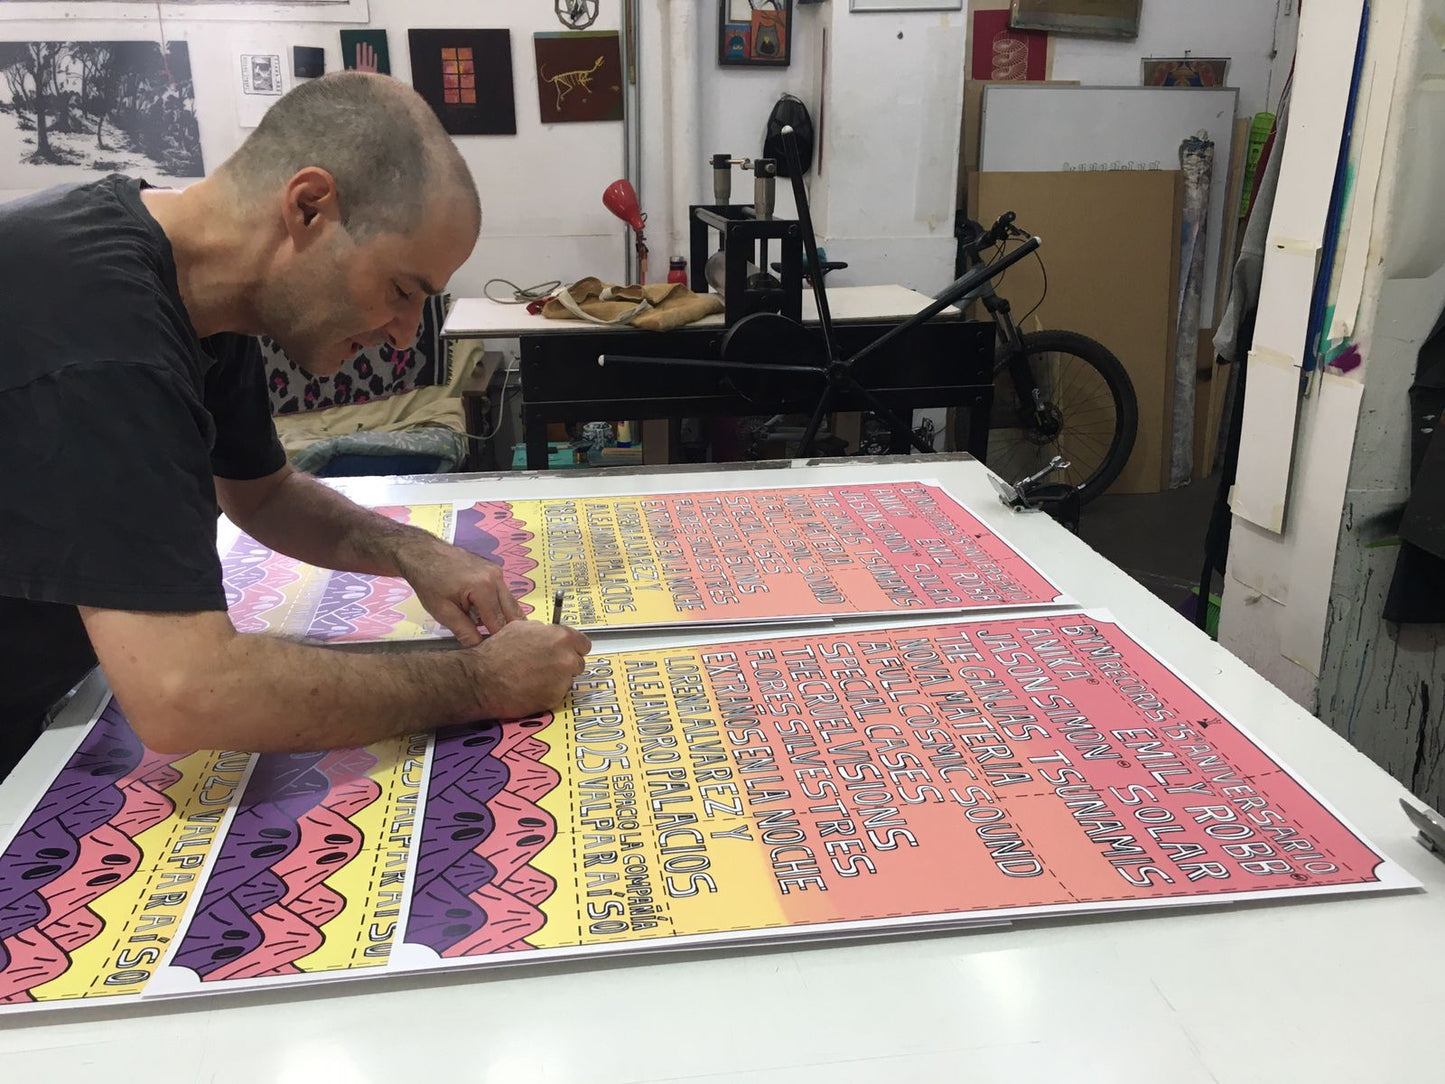 BYM RECORDS 15 ANIVERSARIO
ANIKA® EMILY ROBB®
JASON SIMON® SOLAR
THE GANJAS TSUNAMIS
NOVA MATERIA
A FULL COSMIC SOUND
SPECIAL CASES
THE CRUEL VISIONS
FLORES SILVESTRES
EXTRAÑOS EN LA NOCHE
LORENA ALVAREZ Y
ALEJANDRO PALACIOS
18 ENERO 25 ESPACIO LA COMPAÑÍA
VALPARAÍSO
BYM RECORDS 15 ANIVERSARIO
ANIKA® EMILY ROBB
JASON SIMON® SOLAR
THE GANJAS TSUNAMIS
NOVA MATERIA
A FULL COSMIC SOUND
SPECIAL CASES
THE CRUEL VISIONS
FLORES SILVESTRES
EXTRAÑOS EN LA NOCHE
LORENA ALVAREZ Y
ALEJANDRO PALACIOS
18 ENERO 25 ESPACIO LA COMPAÑÍA
VALPARAÍSO
25 VALPARAÍSO
25 VALPARAÍSO